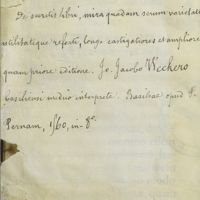 De secretis libri, mira quadam rerum varietate
utilitateque referti, longe castigatiores et ampliores
quam priore editione. Jo. Jacobo Weckero
basiliensi medico interprete. Basileae apud P.
Pernam, 1560, in-8°.